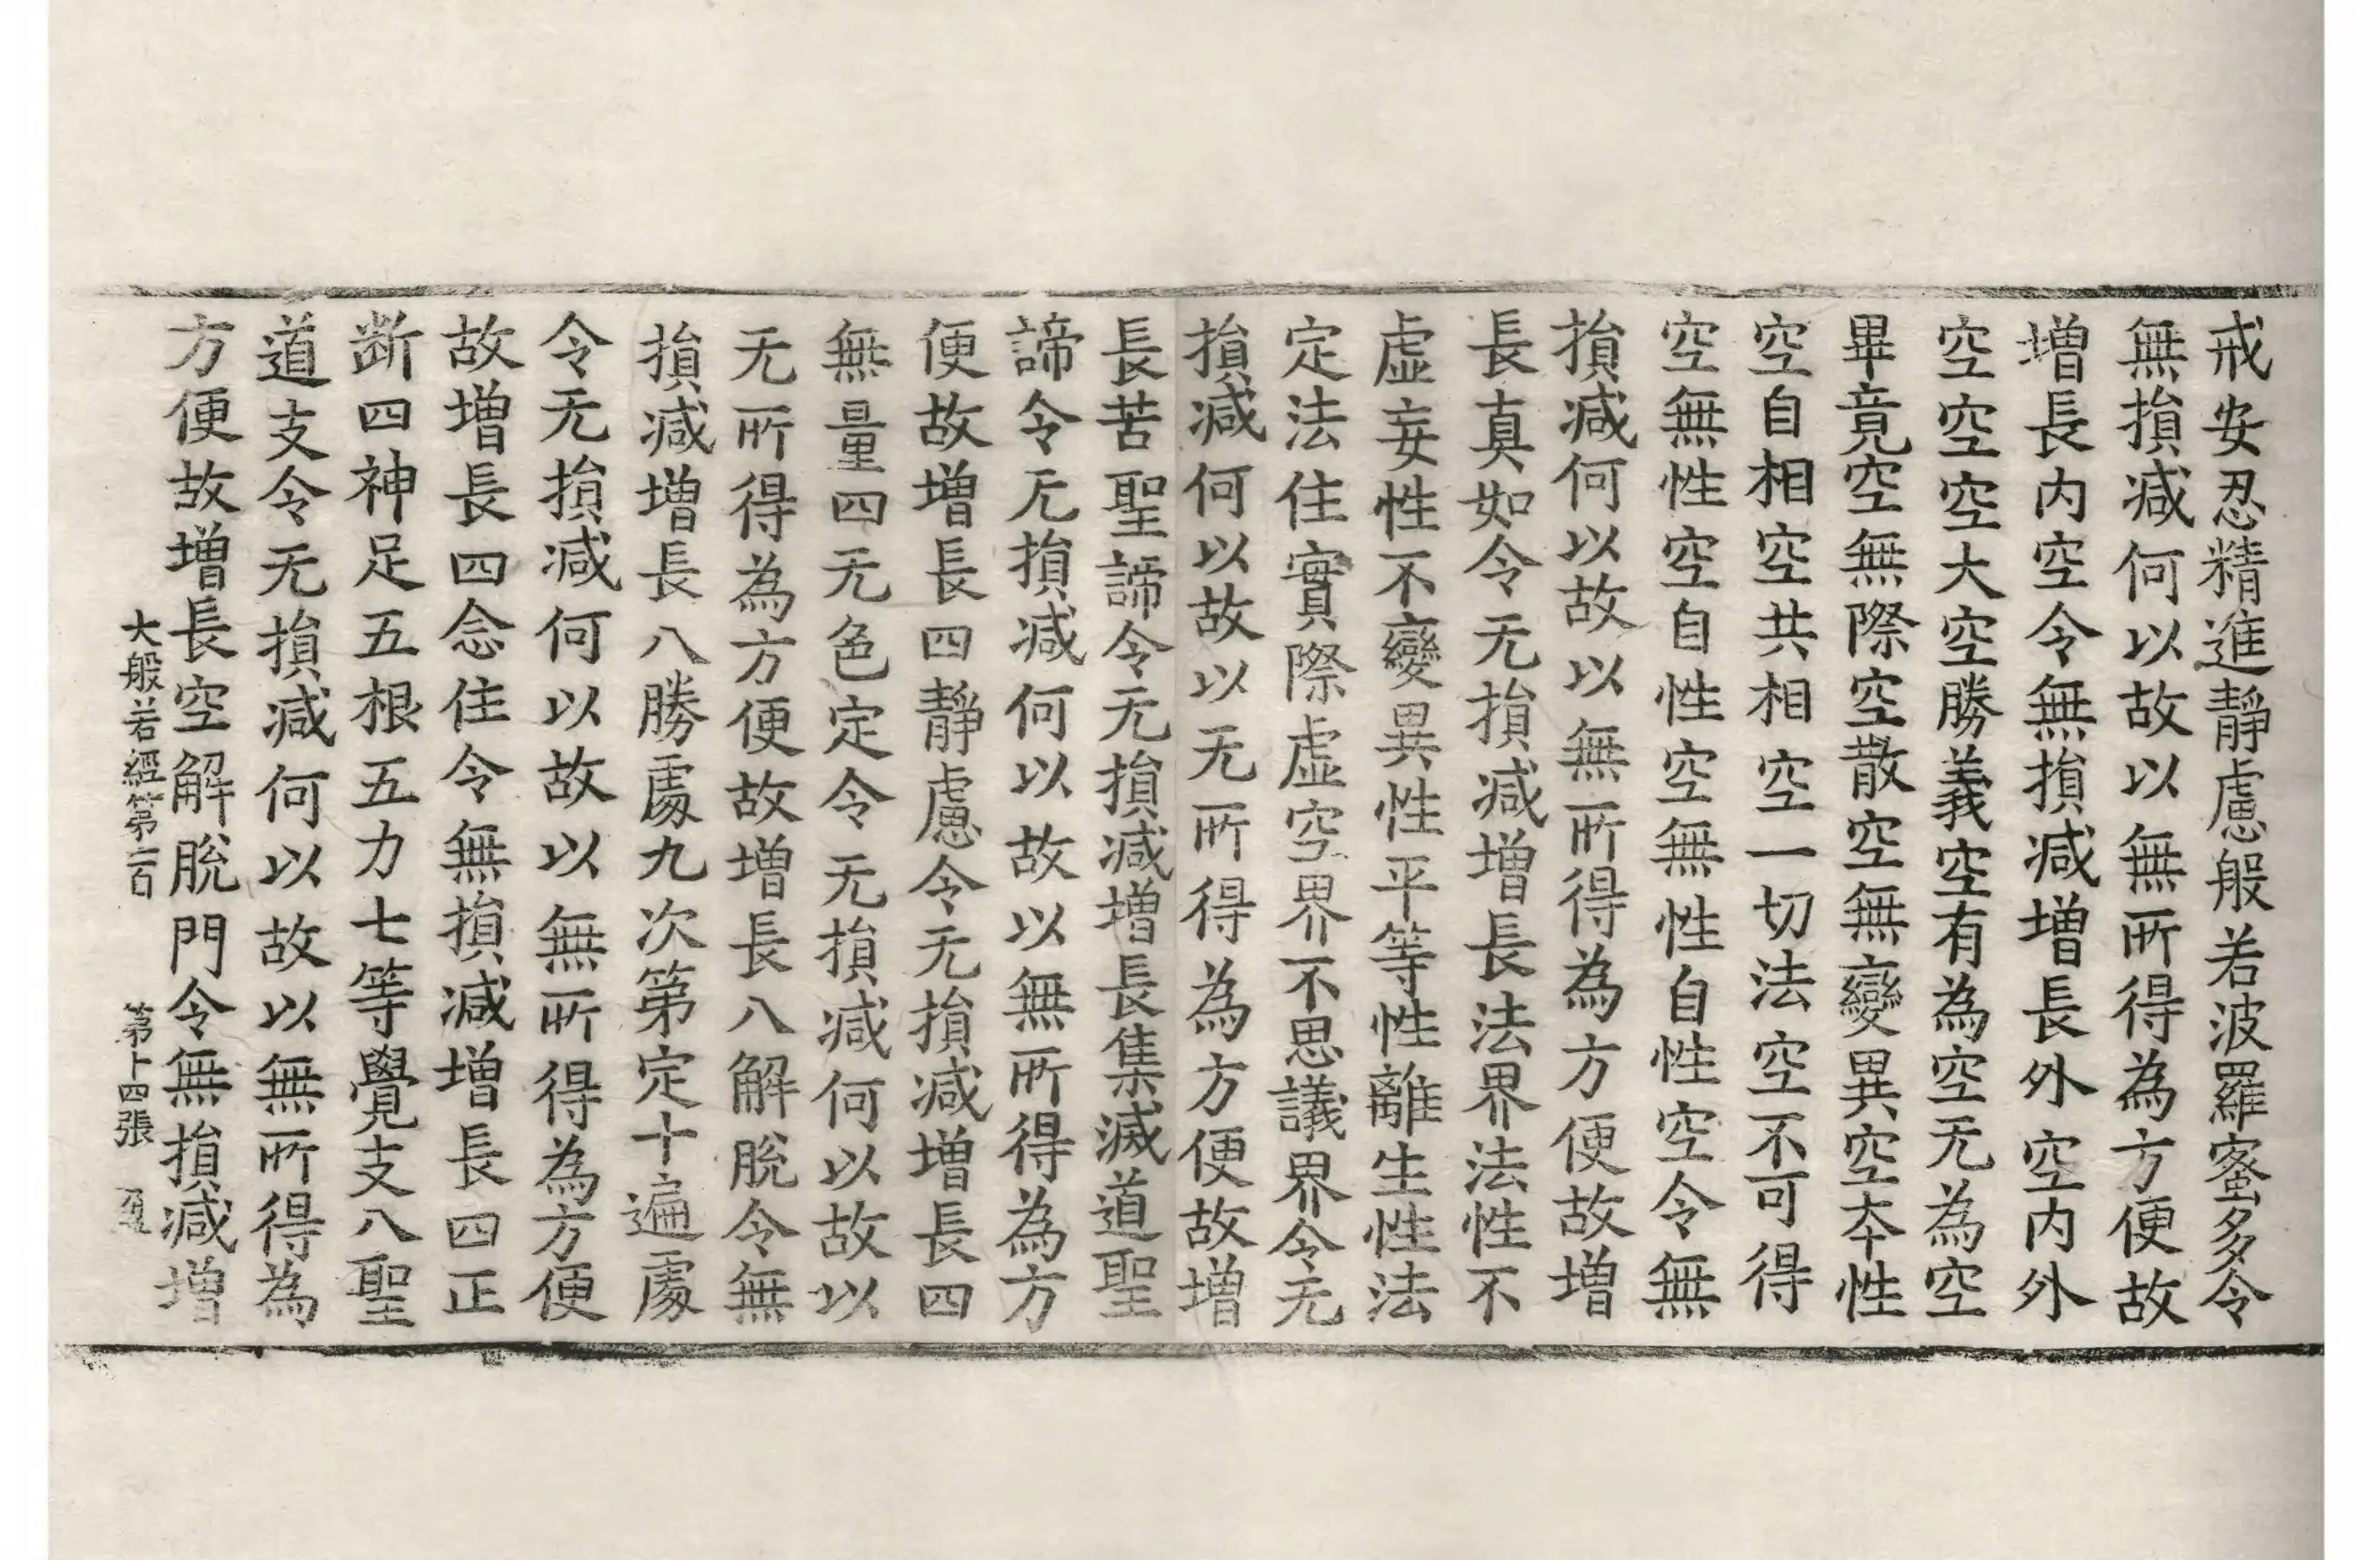 戒安忍精進靜慮般若波羅蜜多令
無損減何以故以無所得為方便故
增長内空令無損減增長外空内外
空空空大空勝義空有為空无為空
畢竟空無際空散空無變異空本性
空自相空共相空一切法空不可得
空無性空自性空無性自性空令無
損減何以故以無所得為方便故增
長真如令无損減增長法界法性不
虛妄性不變異性平等性離生性法
定法住實際虛空界不思議界令无
損減何以故以无所得為方便故增
長苦聖諦令无損減增長集滅道聖
諦令无損減何以故以無所得為方
便故增長四靜慮令无損減增長四
無量四无色定令无損減何以故以
无所得為方便故增長八解脫令無
損減增長八勝處九次第定十遍處
令无損減何以故以無所得為方便
故增長四念住令無損減增長四正
断四神足五根五力七等覺支八聖
道支令无損減何以故以無所得為
方便故增長空解脫門令無損減增
大般若經第二百 第十四張